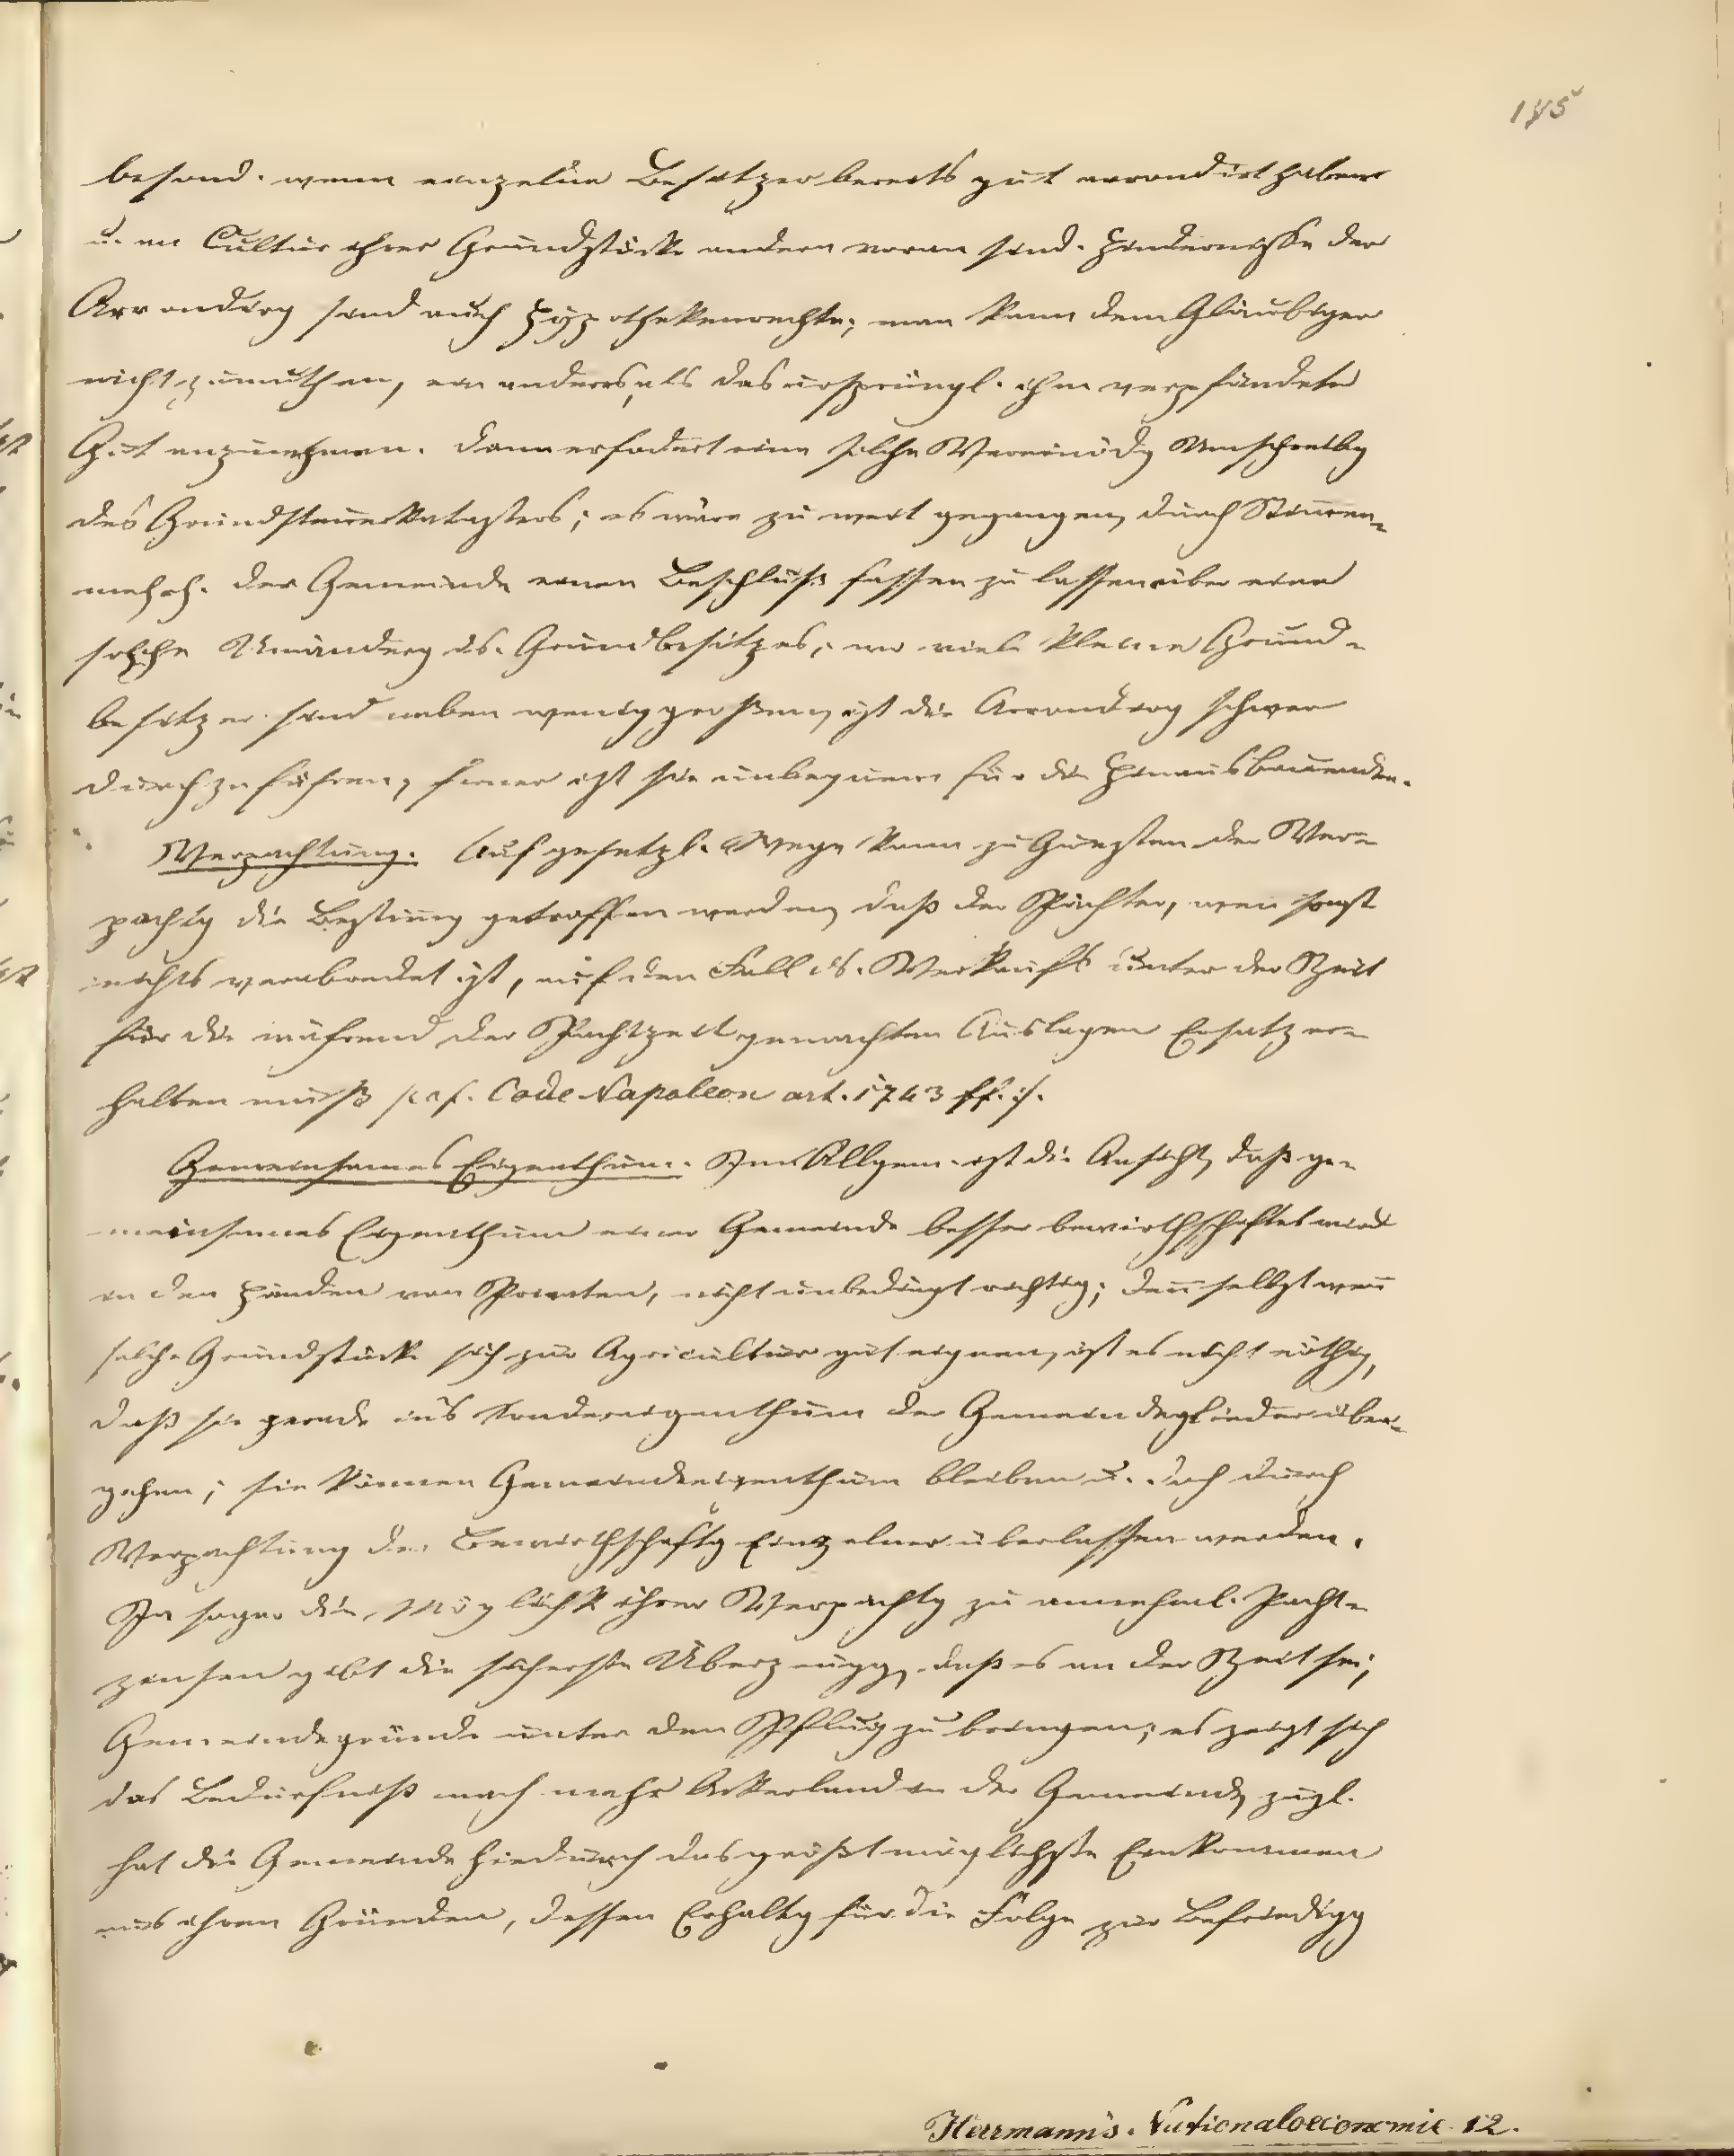 185
besond. wenn einzelne Besitzer bereits gut arrondirt haben
u. in Cultur ihrer Grundstücke andern voran sind. Hindernisse der
Arrondirg sind auch Hypothekenrechte; man kann dem Gläubiger
nicht zumuthen, ein anderes, als das ursprüngl. ihm verpfändete
Gut anzunehmen. Dann erfodert eine solche Umschreibg
des Grundsteuerkatasters; es wäre zu weit gegangen, durch Stimmen-
mehrh. der Gemeinde einen Beschluß fassen zu lassen über eine
solche Umänderg ds. Grundbesitzes; wo viele kleine Grund-
besitzer sind neben wenig großen, ist die Arrondirg schwer
durchzuführen, ferner ist sie unbequem für die Hinausbauenden.
Verpachtung. Auf gesetzl. Wege kann zu Gunsten der Ver-
pachtg die Bestimg getroffen werden, daß der Pächter, wen sonst
nichts verabredet ist, auf den Fall ds. Verkaufs unter der Zeit
für die während der Pachtzeit gemachten Auslagen Ersatz er-
halten muß /: cf. Code Napoleon art. 1743 ff. :/.
Gemeinsames Eigenthum. Im Allgem. ist die Ansicht, daß ge-
meinsames Eigenthum einer Gemeinde besser bewirthschaftet wird
in den Händen von Privaten, nicht unbedingt richtig; den selbst wen
solche Grundstücke sich zur Agricultur gut eignen, ist es nicht nöthig,
daß sie gerade ins Sondereigenthum der Gemeindeglieder über-
gehen; sie können Gemeindeeigenthum bleiben u. doch durch
Verpachtung der Bewirthschaftg Einzelner überlassen werden.
Ja sogar die Möglichk ihrer Verpachtg zu annehml. Pacht-
zinsen gibt die sicherste Überzeugg, daß es an der Zeit sei,
Gemeindegründe unter den Pflug zu bringen; es zeigt sich
das Bedürfniß nach mehr Ackerland in der Gemeinde, zugl.
hat die Gemeinde hiedurch das größtmöglichste Einkommen
aus ihren Gründen, dessen Erhaltg für die Folge zur Befriedigg
Herrmann's Nationaloeconomie 12.